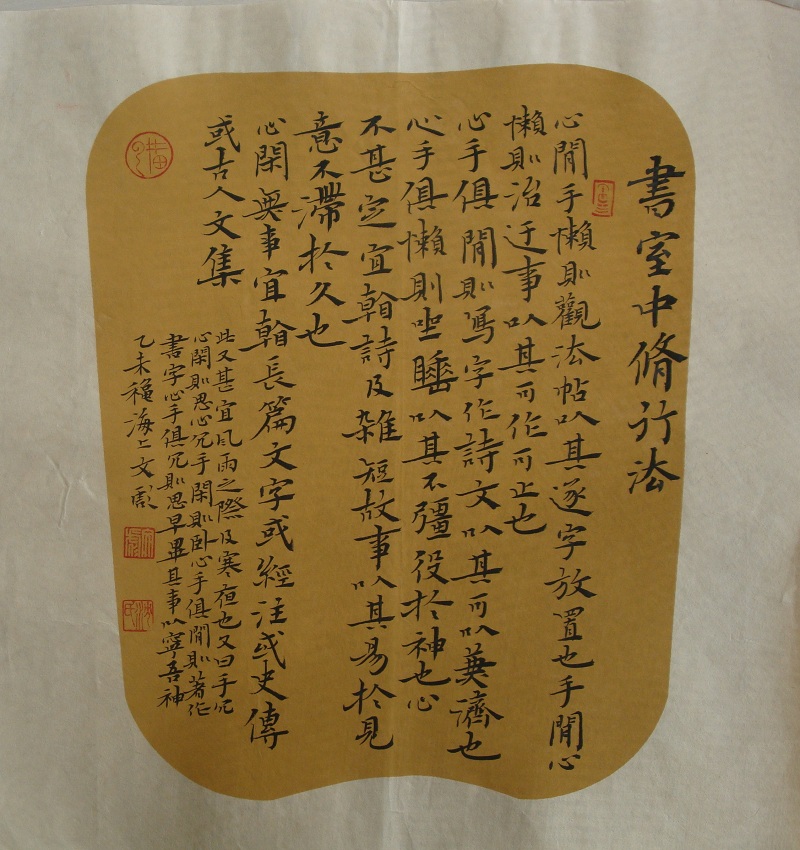 書室中脩行法
心閒手懶則觀法帖以其逐字放置也手閒心
懶則治迂事以其可作可止也
心手俱閒則寫字作詩文以其可以兼濟也
心手俱懶則坐睡以其不彊役於神也心
不甚定宜翰詩及雜短故事以其易於見
意不滯於久也
心閑無事宜翰長篇文字或經注或史傳
或古人文集
此又甚宜風雨之際及寒夜也又曰手冗
心閑則思心冗手閑則卧心手俱閒則著作
書字心手俱冗則思早畢其事以寧吾神
乙未穐海上文彧